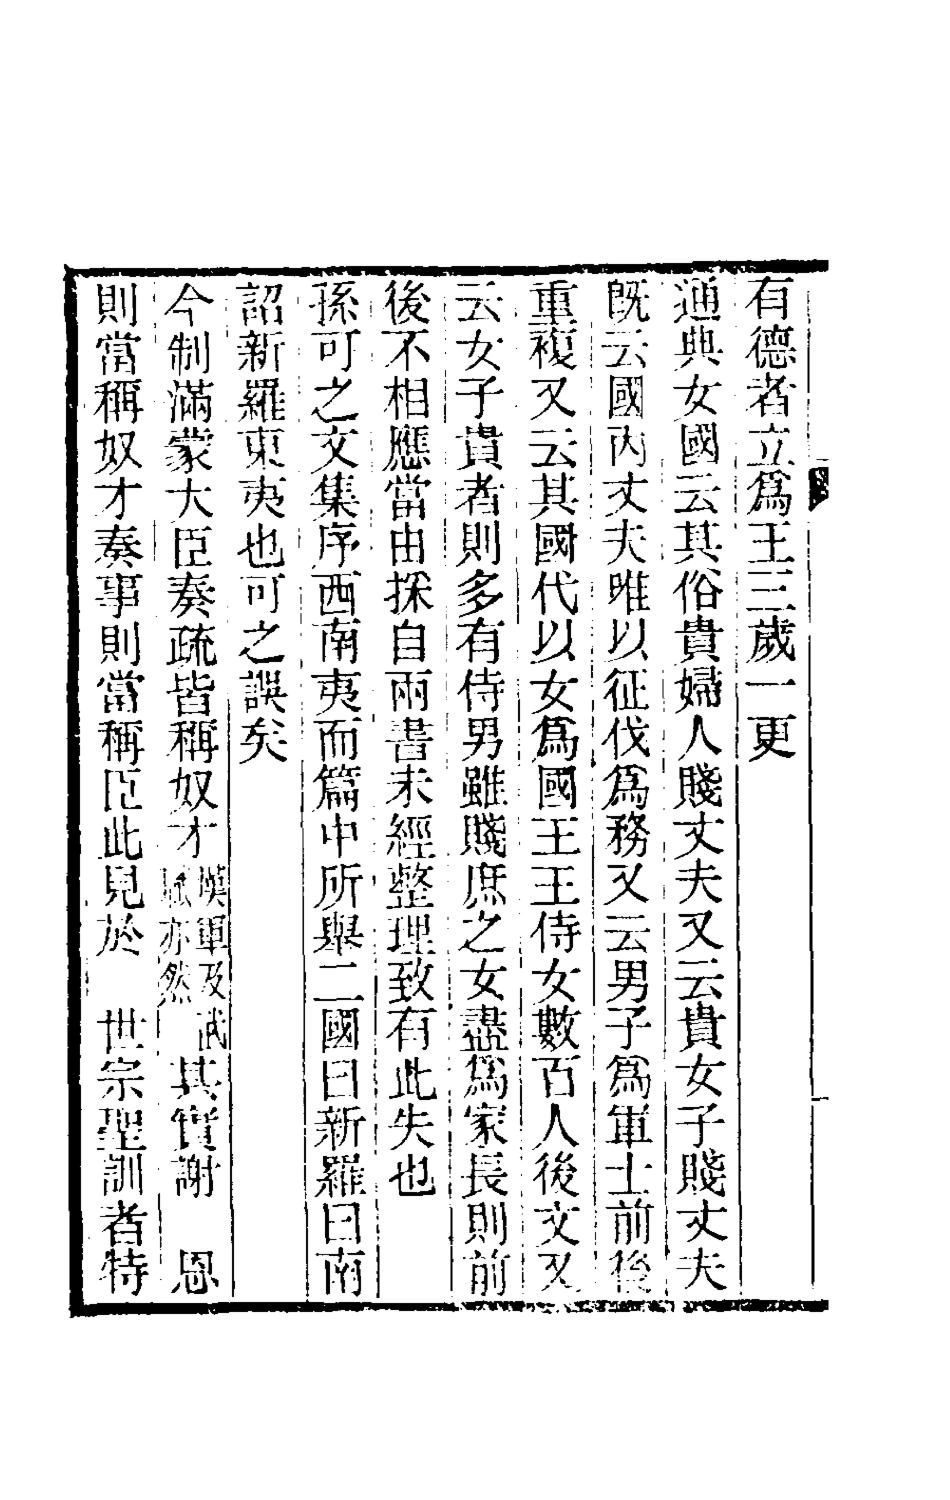 有德者立爲王三歲一更
通典女國云其俗貴婦人賤丈夫又云貴女子賤丈夫
既云國內丈夫唯以征伐爲務又云男子爲軍士前後
重複又云其國代以女爲國王王侍女數百人後文又
云女子貴者則多有侍男雖賤庶之女盡爲家長則前
後不相應當由採自兩書未經整理致有此失也
孫可之文集序西南夷而篇中所舉二國曰新羅曰南
詔新羅東夷也可之誤矣
今制滿蒙大臣奏疏皆稱奴才漢軍及武職亦然其實謝　恩
則當稱奴才奏事則當稱臣此見於　世宗聖訓者特